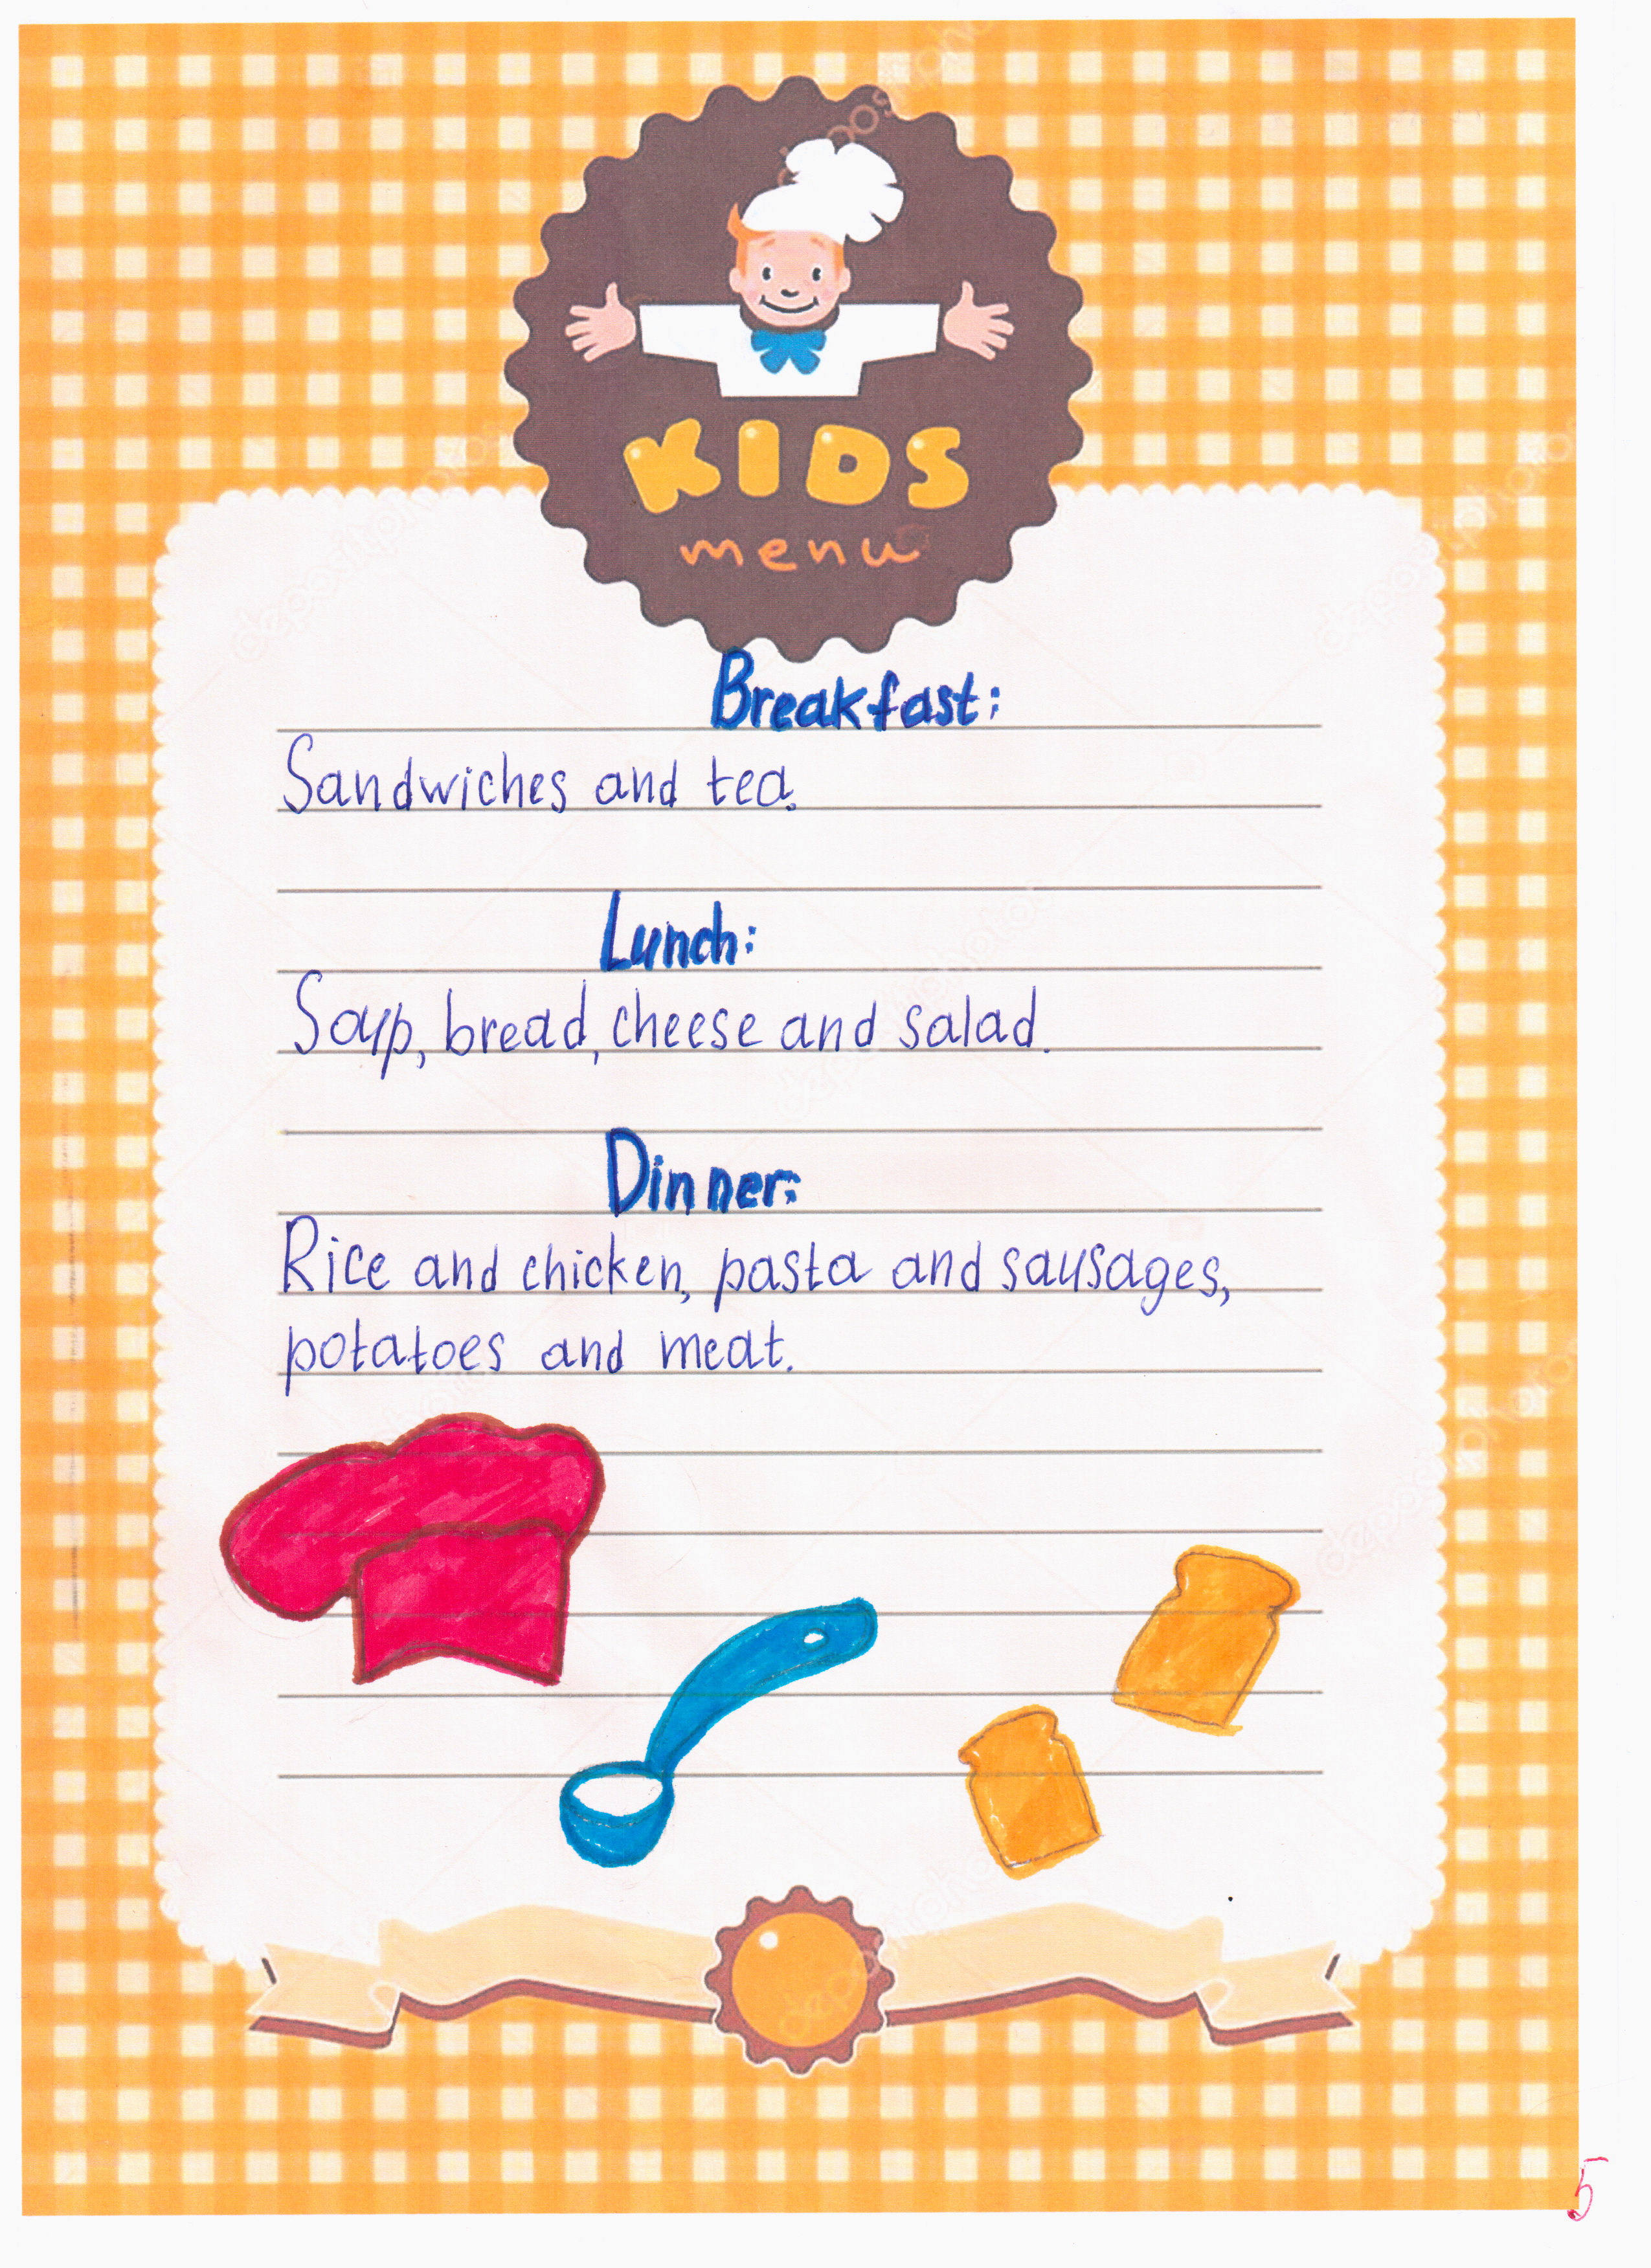 KIDS
menu
Breakfast:
Sandwiches and tea.
Lunch:
Soup, bread, cheese and salad.
Dinner:
Rice and chicken, pasta and sausages,
potatoes and meat.
5